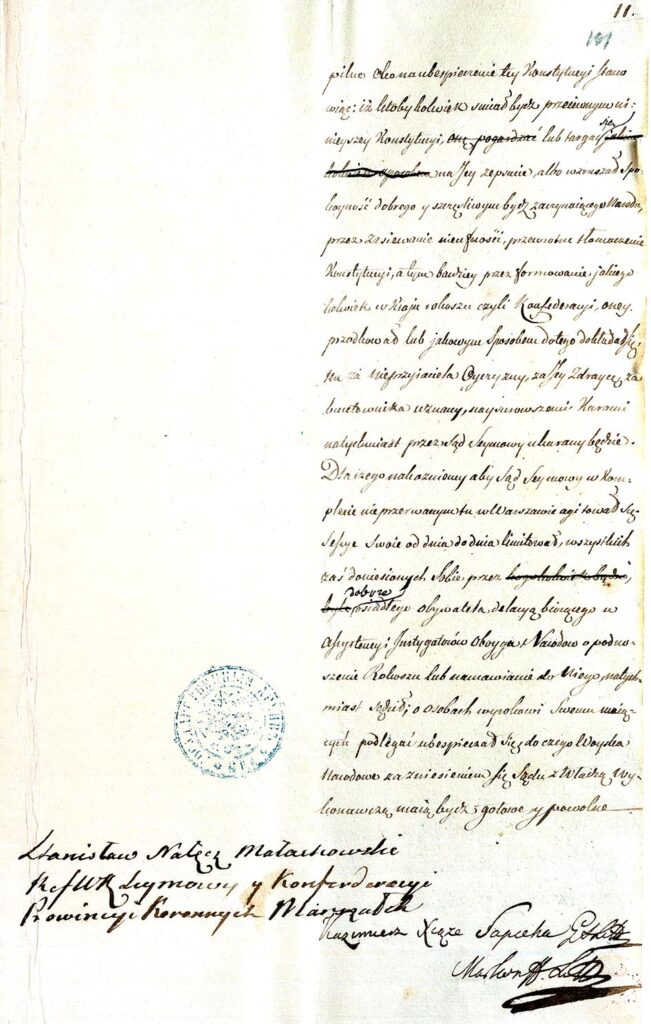 11.
101
pilne oko na ubespieczenie tey Konstytucyi stano
wiąc: iż ktoby kolwiek smiał bydz przeciwnym ni-
nieyszey Konstytucyi, onę pogardzać lub targać się
na Jey zepsucie, albo wzruszał spo-
koyność dobrego y szczęśliwym bydź zaczynaiącego Narodu,
przez zasiewanie nieufności, przewrotne tłomaczenie
Konstytucyi, a tym bardziey przez formowanie jakiego
kolwiek w Kraiu rokoszu czyli Konfederacyi, oney
przodkował lub jakowym sposobem do tego dokładał się,
ten za nieprzyiaciela Oyczyzny, za Jey Zdraycę, za
buntownika uznany, naysurowszemi Karami
natychmiast przez Sąd Seymowy ukarany będzie.
Dla czego nakazuiemy aby Sąd Seymowy w Kom-
plecie nieprzerwanym tu w Warszawie agitował się
Sessye swoie od dnia do dnia limitował, wszystkich
zaś doniesionych sobie przez kogokolwiek bądź,
byle dobrze osiadłego obywatela, delacyą biorącego w
Assystencyi Instygatorów Oboyga Narodow o podno-
szenie Rokoszu lub namawianie do Niego natych-
miast sądził; o osobach wyrokowi Swemu maią-
cych podlegać ubespieczał się, do czego Woyska
Narodowe za zniesieniem się Sądu z Władzą Wy-
konawczą maią bydz gotowe y powolne
Stanisław Nałęcz Małachowski
Ref WK Seymowy y Konferderacyi
Prowincyi Koronnych Marszałek
Kazimierz Xąże Sapieha